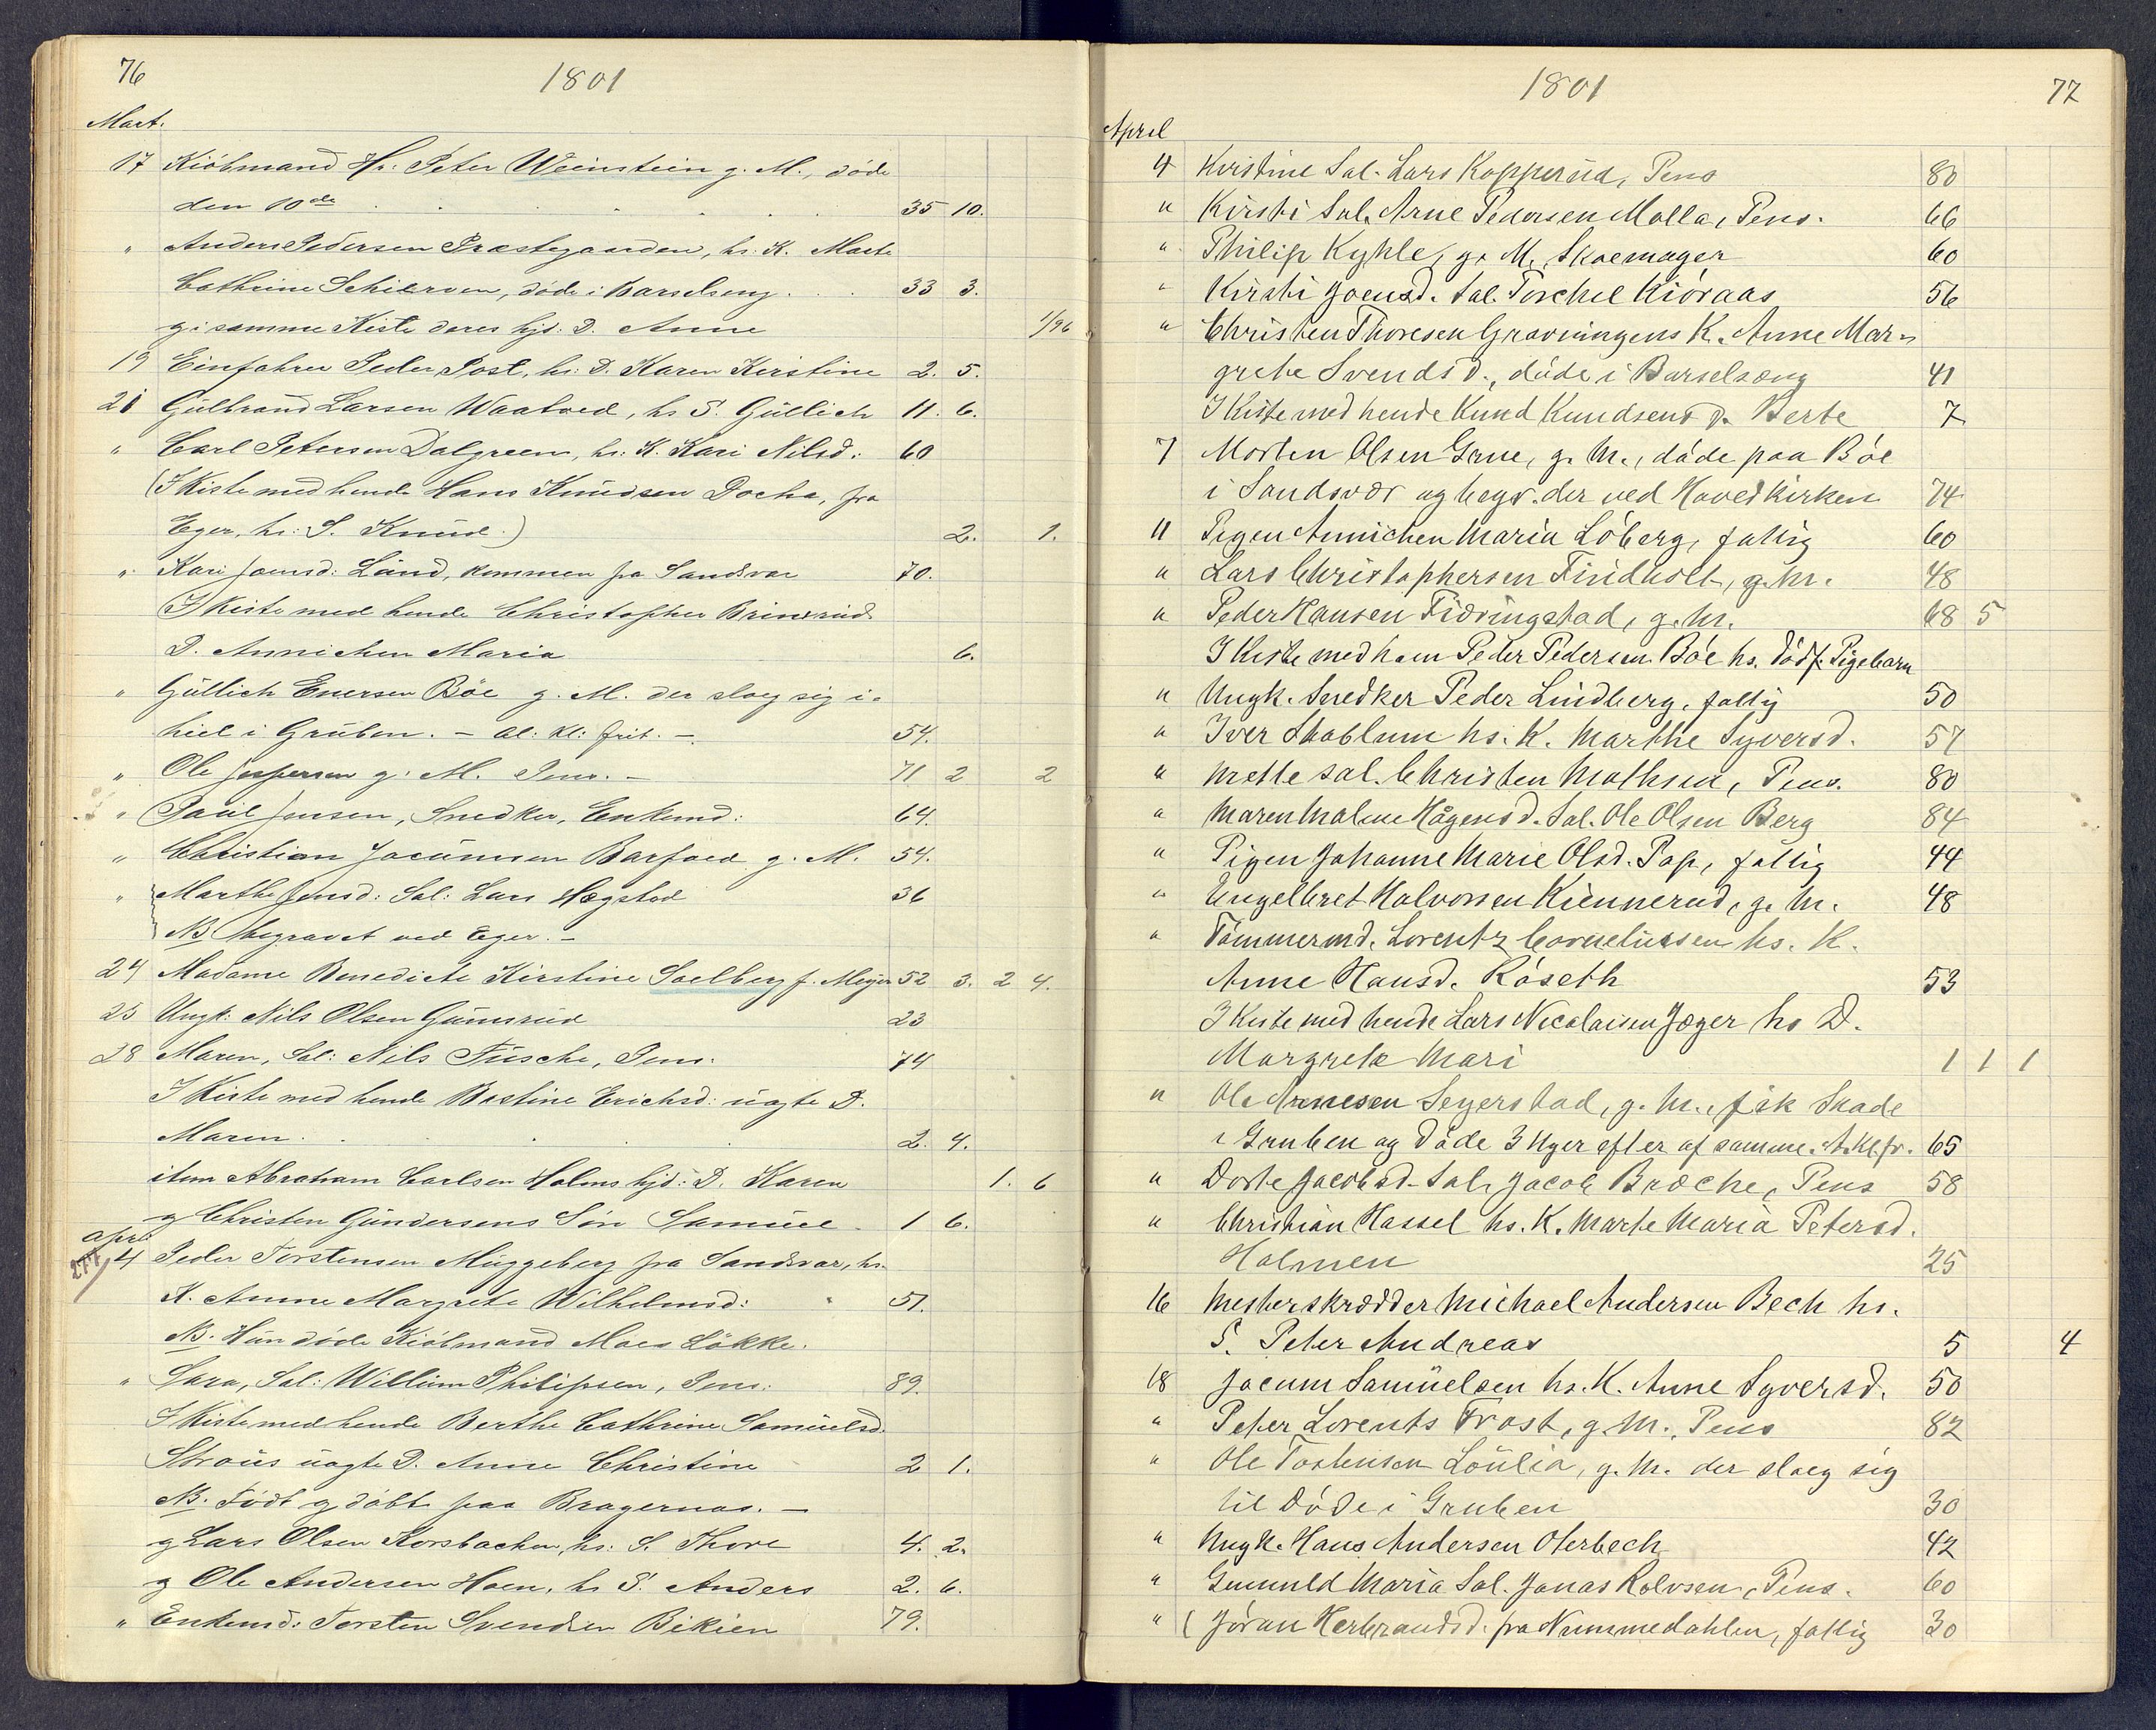 76
1801
Mart.
17 Kiöbmand Hr: Peter Weinstein g. M., döde
den 10de . . . . . 35 10.
" Anders Pedersen Præstegaarden, hs. K. Marte
Cathrine Schierven, döde i Barselseng . . 33 3.
g i samme Kiste deres hjd: D. Anne 1/96
19 Einfahrer Peder Post, hs: D. Karen Kirstine 2. 5.
21 Gulbrand Larsen Waatved, hs S. Gullich 11. 6.
" Carl Petersen Dalgreen, hs: K. Kari Nilsd: 60
(I Kiste med hende Hans Knudsen Docka, fra
Eger, hs: S. Knud.) 2. 1.
" Kari Joensd: Lund, kommen fra Sandsvær 70.
I Kiste med hende Christopher Brinsrud
D. Annichen Maria 6.
" Gullich Enersen Böe g. M. der sloeg sig i-
hiel i Gruben. - al: kl: frit. - 54.
" Ole Jespersen g. M. Pens. - 71 2 2
" Paul Jensen, Snedker, Enkemd: 64.
" Christian Jocumsen Barfoed g. M. 54.
" Marthe Jensd: Sal: Lars Hegstad 36
NB begravet ved Eger. -
24 Madame Benedicte Kirstine Soelberg f. Meyer 52 3. 2 4.
25 Ungk: Nils Olsen Gunsrud 23
28 Maren, Sal: Nils Fusche, Pens. 74
I Kiste med hende Bertine Erichsd: uægte D.
Maren . . . 2. 4.
item Abraham Carlsen Holms hjd: D. Karen 1. 6
g Christen Gundersens Sön Samuel 1 6.
apri
277/ 4 Peder Torstensen Muggeberg fra Sandsvær, hs.
K. Anne Margrete Wilhelmsd: 51.
NB. Hun döde Kiöbmand Moes Lökke.
" Sara, Sal: Willum Philipsen, Pens: 89.
I Kiste med hende Berthe Cathrine Samuelsd.
Straus uægte D. Anne Christine 2 1.
NB. Födt g döbt paa Bragernæs. -
g Lars Olsen Korsbacken, hs: S. Thore 4. 2.
g Ole Andersen Hoen, hs S. Anders 2. 6.
" Enkemd: Torsten Svendsen Bikien 79.
1801
77
April
4 Kirstine Sal. Lars Kopperud, Pens 80
" Kirsti Sal. Arne Pedersen Molla, Pens. 66
" Philip Kyhle, g. M. Skoemager 60
" Kirsti Joensd. Sal. Torchel Kiöraas 56
" Christen Thoresen Gravningens K. Anne Mar-
grete Svendsd., döde i Barselsæng 41
I Kiste med hende Knud Knudsens D. Berte 7
7 Morten Olsen Grue, g. M., döde paa Böe
i Sandsvær og begr. der ved Hovedkirken 74
11 Pigen Annichen Maria Löberg, fattig 60
" Lars Christophersen Findholt, g. M. 48
" Peder Hansen Fidringstad, g. M. 68 5
I Kiste med ham Peder Pedersen Böe hs. dödf. Pigebarn
" Ungk. Snedker Peder Lindberg, fattig 50
" Iver Stablum hs. K. Marthe Syversd. 57
" Mette Sal. Christen Mathsen, Pens. 80
" Maren Malene Hågensd. Sal. Ole Olsen Berg 84
" Pigen Johanne Marie Olsd. Pap, fattig 44
" Engelbret Halvorsen Kiennerud, g. M. 48
" Tömmermd. Lorentz Corneliussen hs. K.
Anne Hansd. Röseth 53
I Kiste med hende Lars Nicolaisen Jæger hs D.
Margrete Mari 1 1 1
" Ole Arnesen Segerstad, g. M., fik Skade
i Gruben og döde 3 Uger efter af samme. A. Kl. fr. 65
" Dorte Jacobsd. Sal. Jacob Bræche, Pens 58
" Christian Hassel hs. K. Marte Maria Petersd.
Holmen 25
16 Mesterskrædder Michael Andersen Bech hs.
S. Peter Andreas 5 4
18 Jocum Samuelsen hs. K. Anne Syversd. 50
" Peter Lorents Frost, g. M., Pens 82
" Ole Tostensen Löulia, g. M. der sloeg sig
til döde i Gruben 30
" Ungk. Hans Andersen Oterbech 42
" Gunuld Maria Sal. Jonas Rolvsen, Pens. 60
" ( Jöran Herbrandsd. fra Nummedahlen, fattig 30